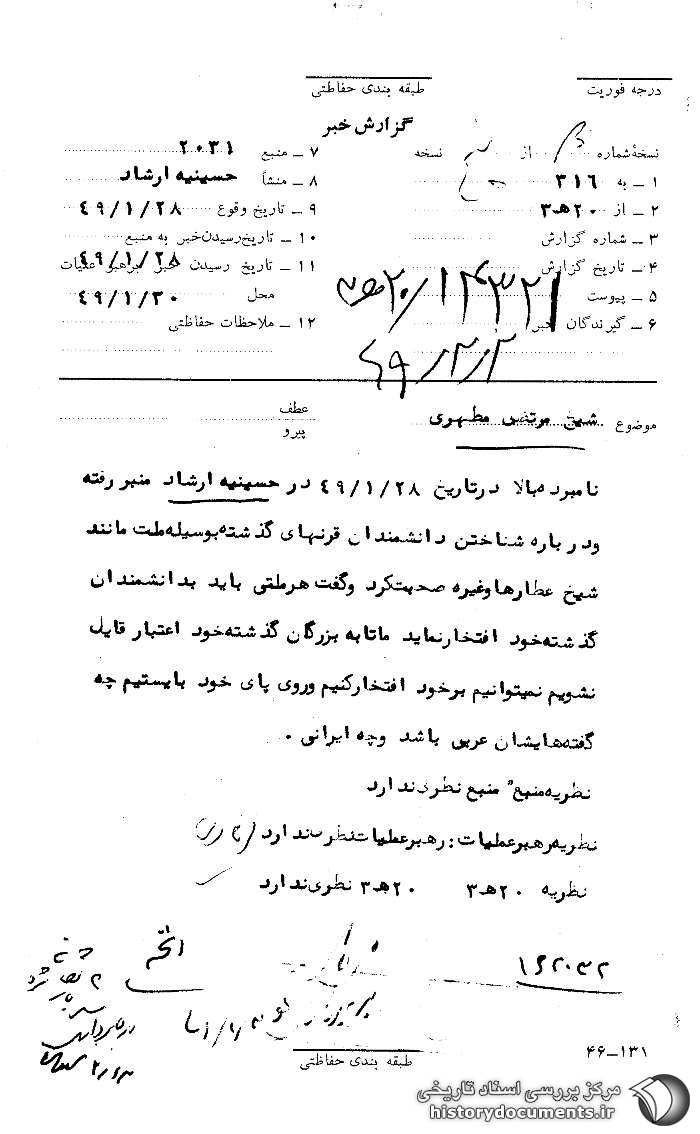 درجه فوریت
طبقه بندی حفاظتی
گزارش خبر
نسخهٔ شماره از نسخه
۱ ـ به ۳۱۶
۲ ـ از ۲۰ هـ ۳
۳ ـ شماره گزارش
۴ ـ تاریخ گزارش
۵ ـ پیوست
۶ ـ گیرندگان خبر
۷ ـ منبع ۲۰۳۱
۸ ـ منشأ حسینیه ارشاد
۹ ـ تاریخ وقوع ۴۹/۱/۲۸
۱۰ ـ تاریخ رسیدن خبر به منبع
۱۱ ـ تاریخ رسیدن خبر برهبر عملیات ۴۹/۱/۲۸
محل ۴۹/۱/۳۰
۱۲ ـ ملاحظات حفاظتی
موضوع شیخ مرتضی مطهری
عطف
پیرو
نامبرده بالا در تاریخ ۴۹/۱/۲۸ در حسینیه ارشاد منبر رفته
ودر باره شناختن دانشمندان قرنهای گذشته بوسیله ملت مانند
شیخ عطارها وغیره صحبت کرد وگفت هر ملتی باید بدانشمندان
گذشته خود افتخار نماید ما تا به بزرگان گذشته خود اعتبار قایل
نشویم نمیتوانیم بر خود افتخار کنیم وروی پای خود بایستیم چه
گفته هایشان عربی باشد وچه ایرانی .
نظریه منبع منبع نظری ندارد
نظریه رهبر عملیات : رهبر عملیات نظری ندارد
نظریه ۲۰ هـ ۳ ۲۰ هـ ۳ نظری ندارد
۴۶-۱۳۱
طبقه بندی حفاظتی
مرکز بررسی اسناد تاریخی
historydocuments.ir